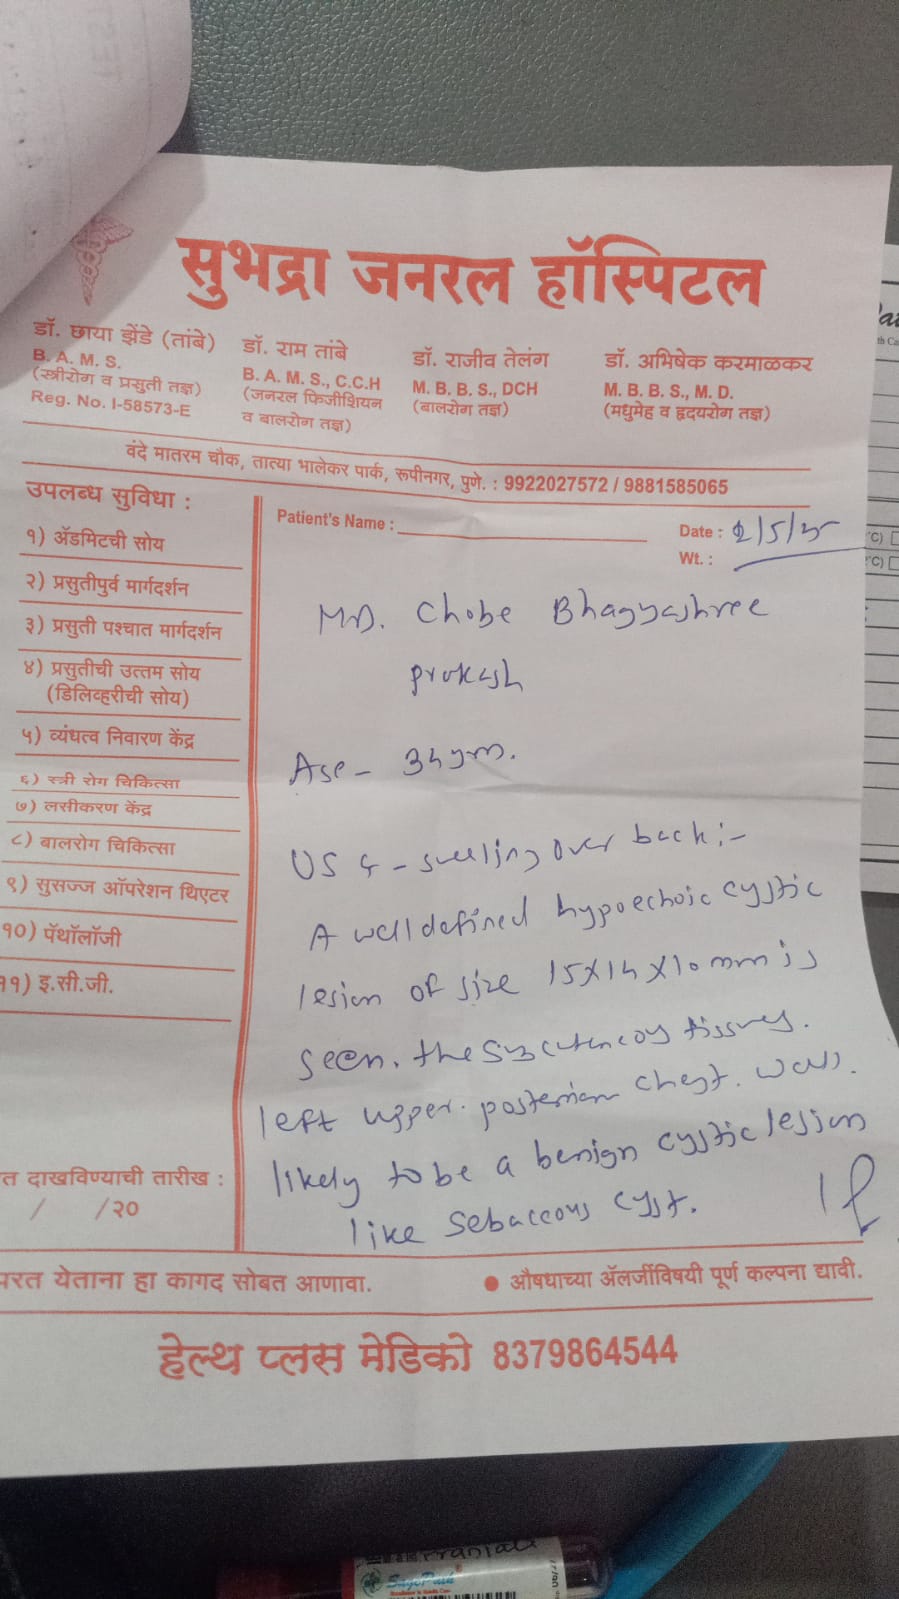 सुभद्रा जनरल हॉस्पिटल
डॉ. छाया झेंडे (तांबे)
B. A. M. S.
(स्त्रीरोग व प्रसुती तज्ञ)
Reg. No. I-58573-E
डॉ. राम तांबे
B. A. M. S., C.C.H
(जनरल फिजीशियन
व बालरोग तज्ञ)
डॉ. राजीव तेलंग
M. B. B. S., DCH
(बालरोग तज्ञ)
डॉ. अभिषेक करमाळकर
M. B. B. S., M. D.
(मधुमेह व हृदयरोग तज्ञ)
वंदे मातरम चौक, तात्या भालेकर पार्क, रूपीनगर, पुणे. : 9922027572 / 9881585065
उपलब्ध सुविधा :
१) ॲडमिटची सोय
२) प्रसुतीपुर्व मार्गदर्शन
३) प्रसुती पश्चात मार्गदर्शन
४) प्रसुतीची उत्तम सोय
(डिलिव्हरीची सोय)
५) व्यंधत्व निवारण केंद्र
६) स्त्री रोग चिकित्सा
७) लसीकरण केंद्र
८) बालरोग चिकित्सा
९) सुसज्ज ऑपरेशन थिएटर
१०) पॅथॉलॉजी
११) इ.सी.जी.
त दाखविण्याची तारीख :
/ /२०
Patient's Name :
Date : 2/5/25
Wt. :
Chobe Bhagyashree
prakash
Age - 34 yrs.
USG - swelling over back :-
A well defined hypoechoic cystic
lesion of size 15X14X10 mm is
seen. the subcutaneous tissues.
left upper. posterior chest. wall.
likely to be a benign cystic lesion
like sebaceous cyst.
परत येताना हा कागद सोबत आणावा.
● औषधाच्या ॲलर्जीविषयी पूर्ण कल्पना द्यावी.
हेल्थ प्लस मेडिको 8379864544